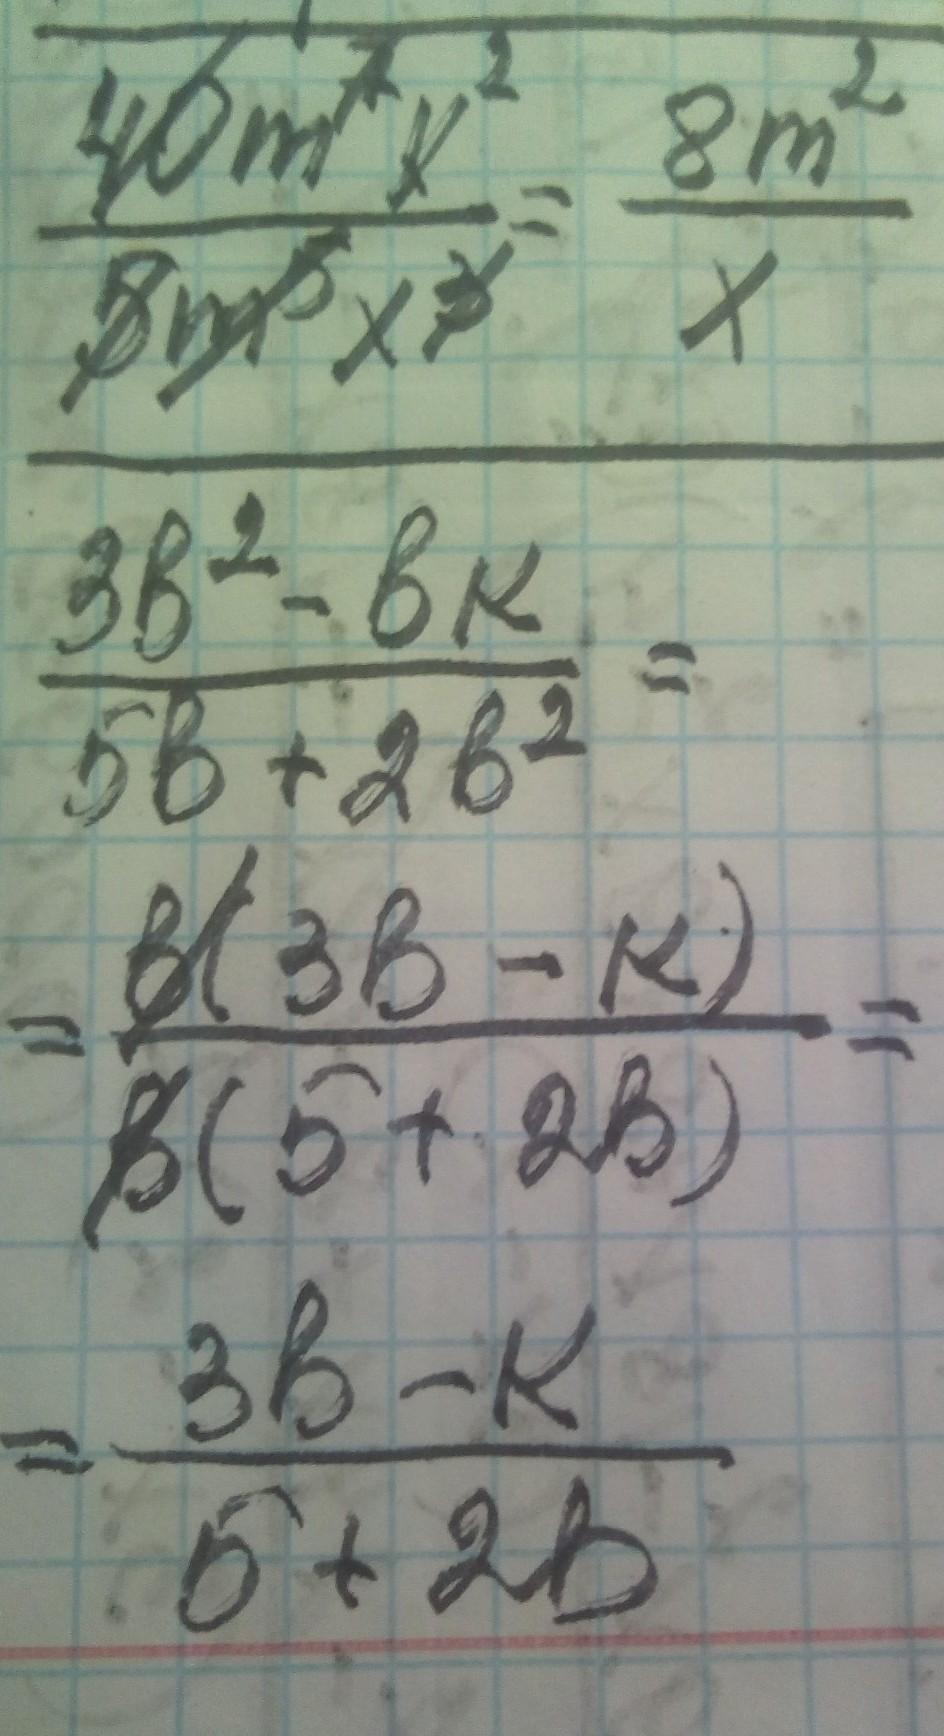 40m⁷x² / 5m⁵x³ = 8m² / x
3b² - bk / 5b + 2b² =
= b(3b - k) / b(5 + 2b) =
= 3b - k / 5 + 2b